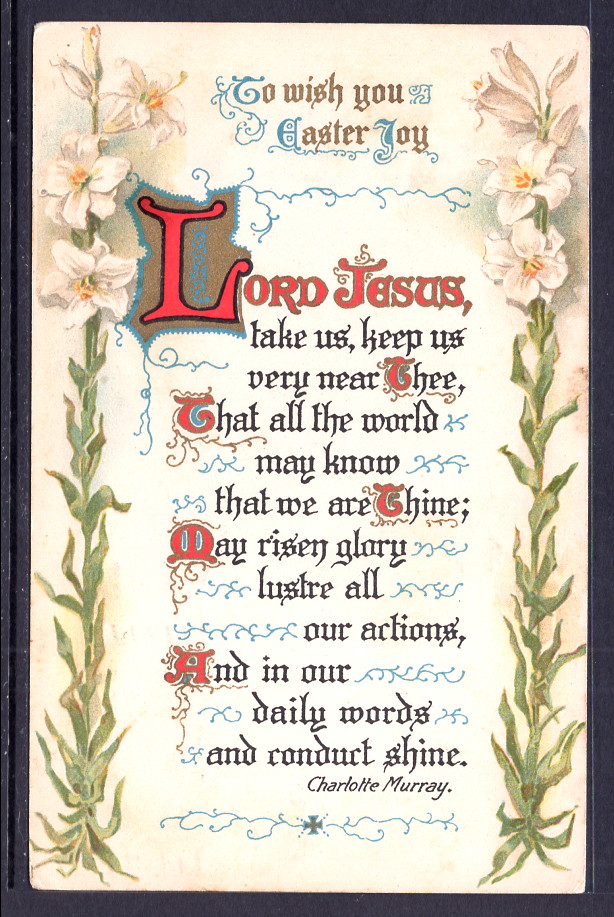 To wish you
Easter Joy
LORD JESUS,
take us, keep us
very near Thee,
That all the world
may know
that we are Thine;
May risen glory
lustre all
our actions,
And in our
daily words
and conduct shine.
Charlotte Murray.